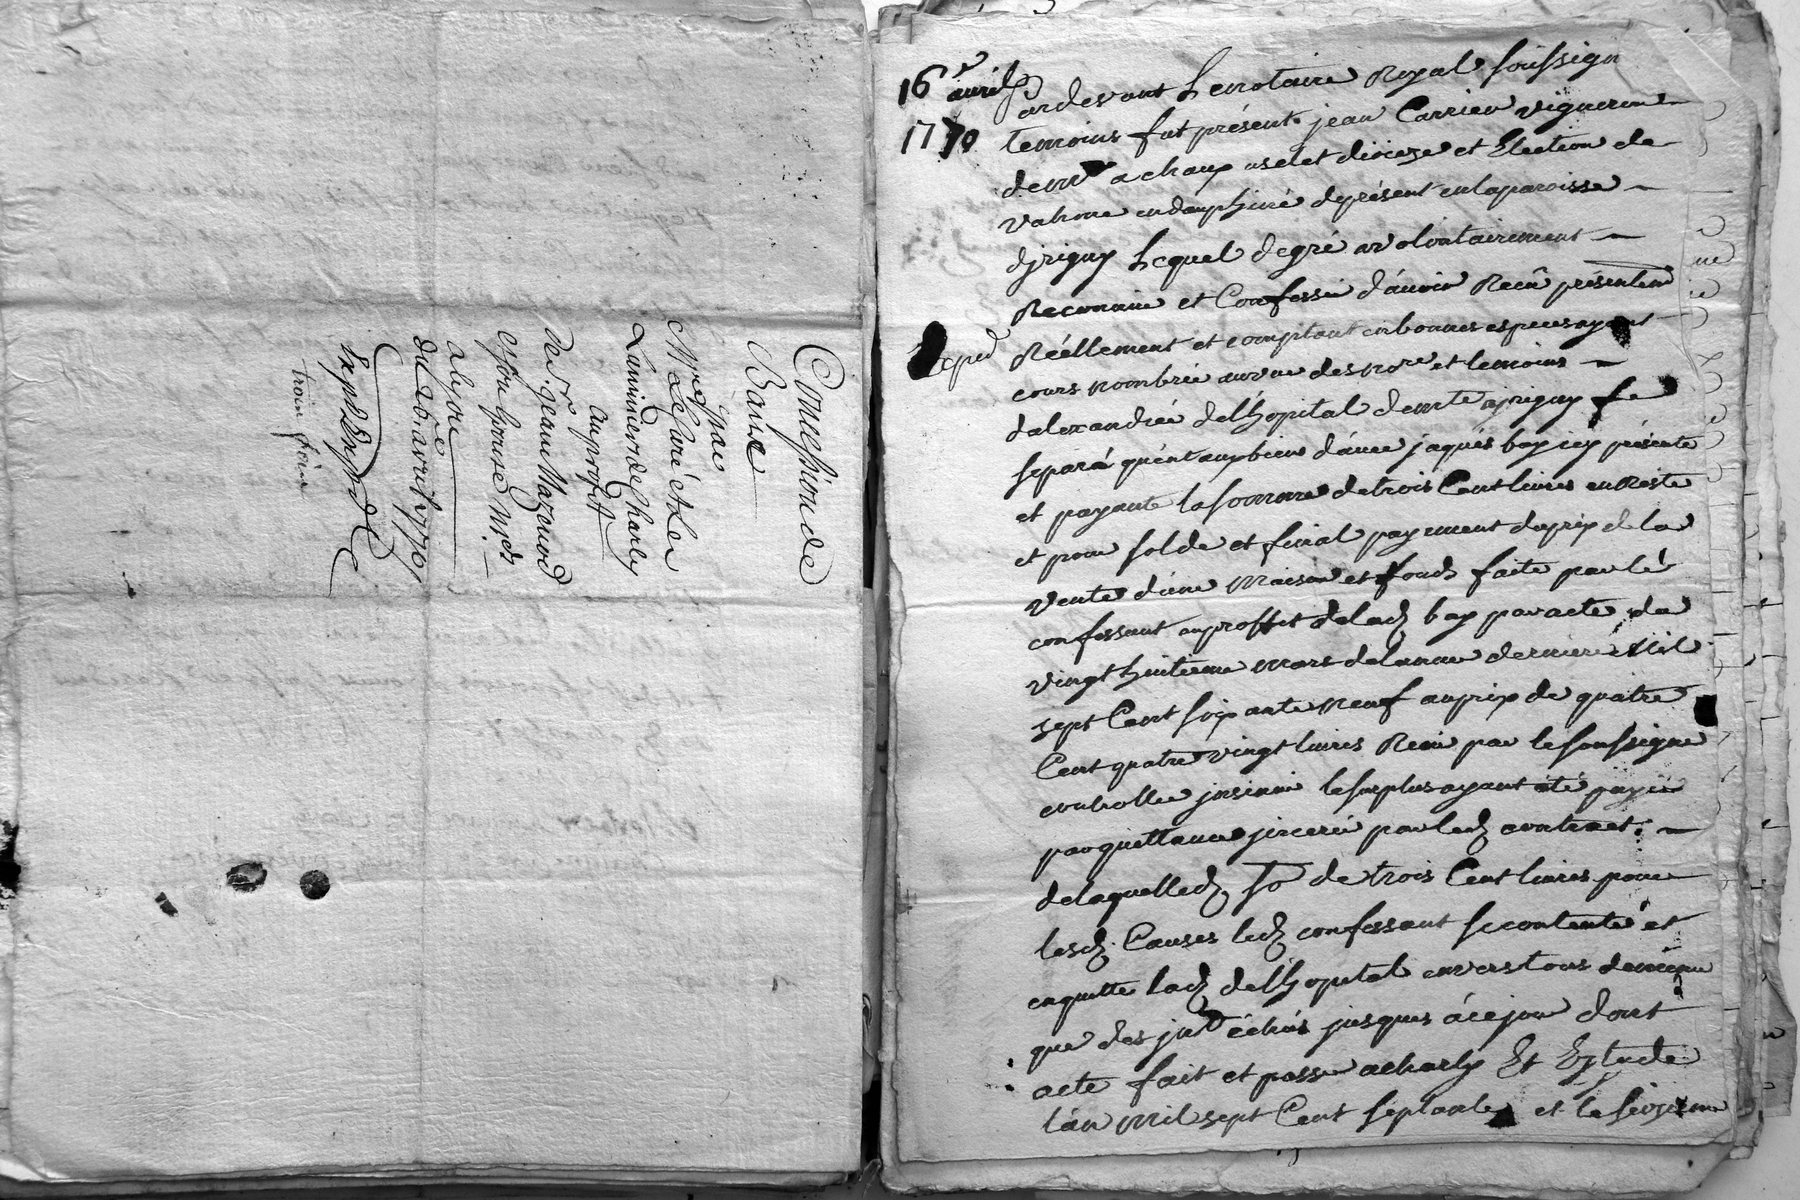 Concession de
Banc
par
Mre Le Curé et Les
Luminiers de Charly
au profit
de sr. jean Mazenod
et son épouse Md
a lyon
du 20e avril 1770
Exp
16e avril
1770
Pardevant Le notaire Royal soussigné
temoins fut présent jean Carrier vigneron
demt a chanp
dioceze et Election de
en dauphiné de présent en la paroisse
djrigny Lequel de gré a volontairement
Reconnu et Confessé d'avoir Reçû présentem
Réellement et comptant en bonnes especes ayant
cours nombrée au vue des nore et temoins
d'alexandrée delhopital demte a jrigny fe
separé quent aux biens d'avec jaques bay icy présente
et payante la somme de trois Cent livres en Reste
et pour solde et final payement du prix de la
vente d'une Maison et fonds faite par le
confessant au proffit de lad bay par acte du
vingt huitieme mars de lannée derniere Mil
sept Cent soixante neuf au prix de quatre
Cent quatre vingt livres Reçu par le soussigné
controllé jnsinué le surplus ayant été payé
par quittance jnceré par led contract.
de laquelle d. so de trois Cent livres pour
lesd. Causes led confessant se contente et
en quitte lad delhopital envers tous de même
que des jnt échus jusques à ce jour dont
acte fait et passé a charly Et Etude
l'an mil sept Cent septante et le seizieme
expéd